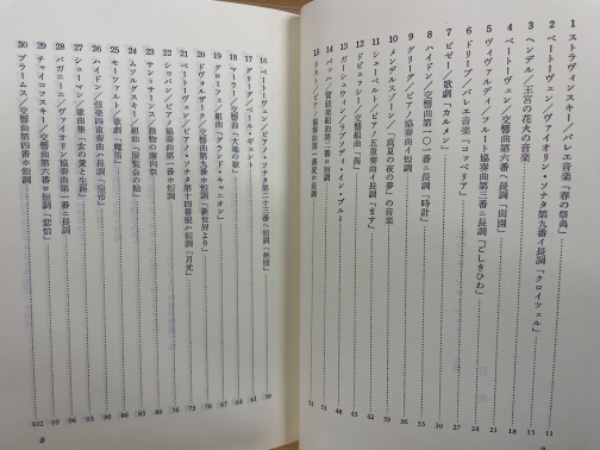 1 ストラヴィンスキー／バレエ音楽「春の祭典」 11
2 ベートーヴェン／ヴァイオリン・ソナタ第九番イ長調「クロイツェル」 13
3 ヘンデル／王宮の花火の音楽 15
4 ベートーヴェン／交響曲第六番ヘ長調「田園」 18
5 ヴィヴァルディ／フルート協奏曲第三番ニ長調「ごしきひわ」 21
6 ドリーブ／バレエ音楽「コッペリア」 24
7 ビゼー／歌劇「カルメン」 27
8 ハイドン／交響曲第一〇一番ニ長調「時計」 30
9 グリーグ／ピアノ協奏曲イ短調
10 メンデルスゾーン／「真夏の夜の夢」の音楽
11 シューベルト／ピアノ五重奏曲イ長調「ます」 39
12 ドビュッシー／交響組曲「海」 42
13 ガーシュウィン／ラプソディ・イン・ブルー
14 バッハ／管弦楽組曲第二番ロ短調 48
15 リスト／ピアノ協奏曲第一番変ホ長調 51
16 ベートーヴェン／ピアノ・ソナタ第二十三番ヘ短調「熱情」
17 グリーグ／ペール・ギュント 61
18 マーラー／交響曲「大地の歌」 64
19 グローフェ／組曲「グランド・キャニオン」 67
20 ドヴォルザーク／交響曲第九番ホ短調「新世界より」 70
21 ベートーヴェン／ピアノ・ソナタ第十四番嬰ハ短調「月光」 73
22 ショパン／ピアノ協奏曲第一番ホ短調 76
23 サン＝サーンス／動物の謝肉祭 79
24 ムソルグスキー／組曲「展覧会の絵」
25 モーツァルト／歌劇「魔笛」
26 ハイドン／弦楽四重奏曲ハ長調「皇帝」
27 シューマン／歌曲集「女の愛と生涯」 93
28 パガニーニ／ヴァイオリン協奏曲第一番ニ長調 96
29 チャイコフスキー／交響曲第六番ロ短調「悲愴」 99
30 ブラームス／交響曲第四番ホ短調 102
3